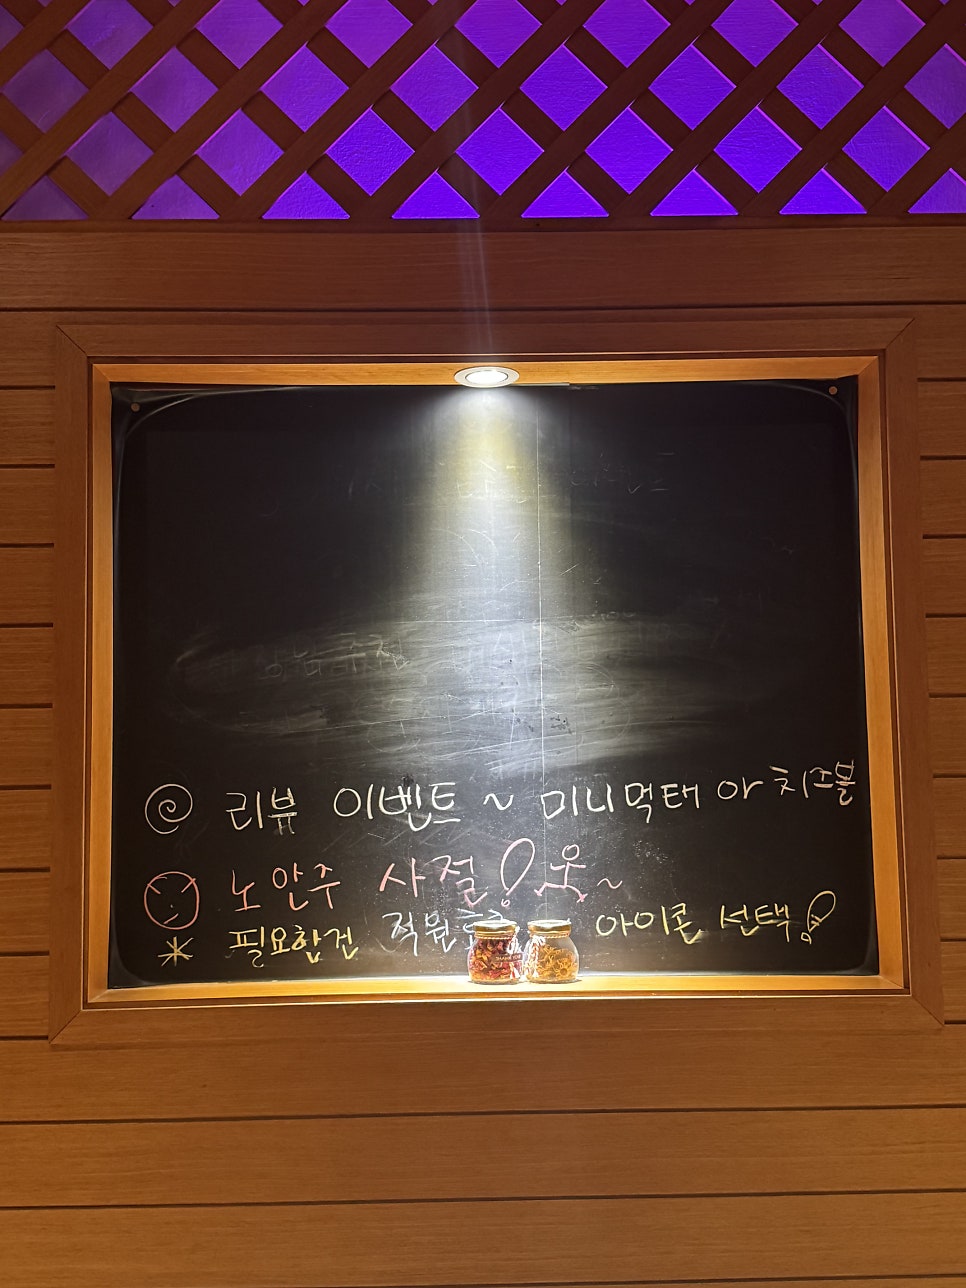 리뷰 이벤트 ~ 미니먹태 아 치즈볼
노 안주 사절! ~
필요합건 직원 아이콘 선택!